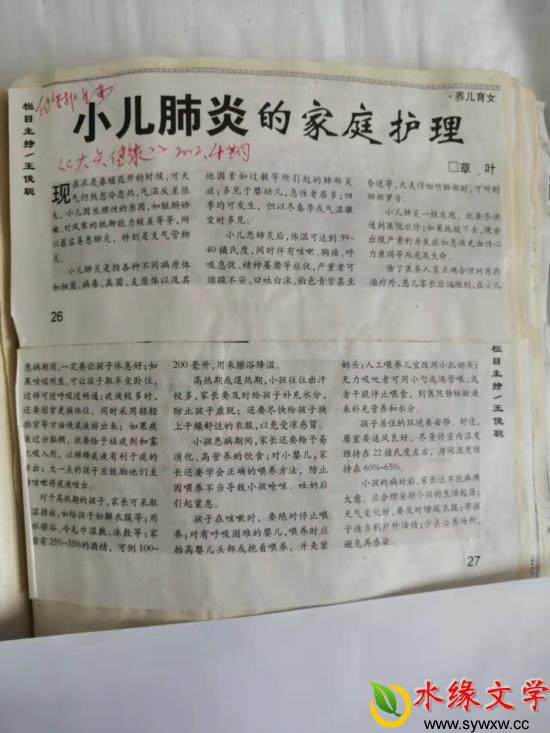 ·养儿育女
栏目主持/王俊聪
小儿肺炎的家庭护理
□草 叶
现在正是春暖花开的时候,可天
气仍然忽冷忽热,气温反差很
大。小儿因生理性的原因,如脏腑娇
嫩,对风寒的抵御能力较差等等,所
以最容易患肺炎,特别是支气管肺
炎。
小儿肺炎是指各种不同病原体
如细菌、病毒、真菌、支原体以及其
他因素如过敏等所引起的肺部炎
症;多见于婴幼儿,急性者居多;四
季均可发生,但以冬春季或气温骤
变时多见。
小儿患肺炎后,体温可达到39~
40摄氏度,同时伴有咳嗽、胸痛、呼
吸急促、精神萎靡等症状,严重者可
烦躁不安、口吐白沫、面色青紫甚至
昏迷等,大夫仔细听肺部时,可听到
肺部罗音。
小儿肺炎一经发现,就要尽快
送到医院就诊;如果拖延下去,便会
出现严重的并发症如急性充血性心
力衰竭等而危及生命。
除了医务人员正确合理的用药
治疗外,患儿家长应该做到,在小儿
26
患病期间,一定要让孩子休息好;如
果咳喘明显,可让孩子取半坐卧位,
这样可使呼吸道畅通;痰液较多时,
还要经常更换体位,同时采用轻轻
拍背等方法使痰液排出来;如果痰
液过分黏稠,就要给予祛痰剂和雾
化吸入剂,以稀释痰液有利于痰的
排出;大一点的孩子应鼓励他们主
咳嗽将痰液咳出。
对于高热期的孩子,家长可采取
温措施,如给孩子松解衣服等;用
水擦浴、冷毛巾湿敷、冰敷等;家
若有25%~35%的酒精,可倒100~
200毫升,用来擦浴降温。
高热期或退热期,小孩往往出汗
较多,家长要及时给孩子补充水分,
防止孩子虚脱;还要尽快给孩子换
上干燥舒适的衣服,以免受凉感冒。
小孩患病期间,家长还要给予易
消化、高营养的饮食;对小婴儿,家
长还要学会正确的喂养方法,防止
因喂养不当导致小孩呛咳、吐奶后
引起窒息。
孩子在咳嗽时,要绝对停止喂
养;对有呼吸困难的婴儿,喂养时应
抬高婴儿头部或抱着喂养,并夹紧
奶头;人工喂养儿宜改用小孔奶头;
无力吸吮者可用小勺或滴管喂,或
者干脆停止喂食,到医院静脉输液
来补充营养和水分。
孩子居住的环境要安静、舒适,
居室要通风良好,尽量将室内温度
维持在22摄氏度左右,房间湿度维
持在60%~65%。
小孩的病好后,家长还不能麻痹
大意。应合理安排小孩的生活起居;
天气变化时,要及时增减衣服;带孩
子适当到户外活动;少去公共场所,
避免再感染。
栏目主持/王俊聪
27
水缘文学
www.sywxw.cc